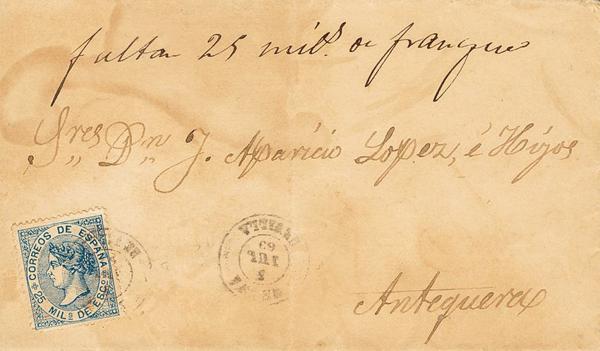 falta 25 mils. de franqueo
Sres Dn J. Aparicio Lopez, é Hijos
CORREOS DE ESPAÑA
25 MILS DE ESCO
JUL
69
Antequera